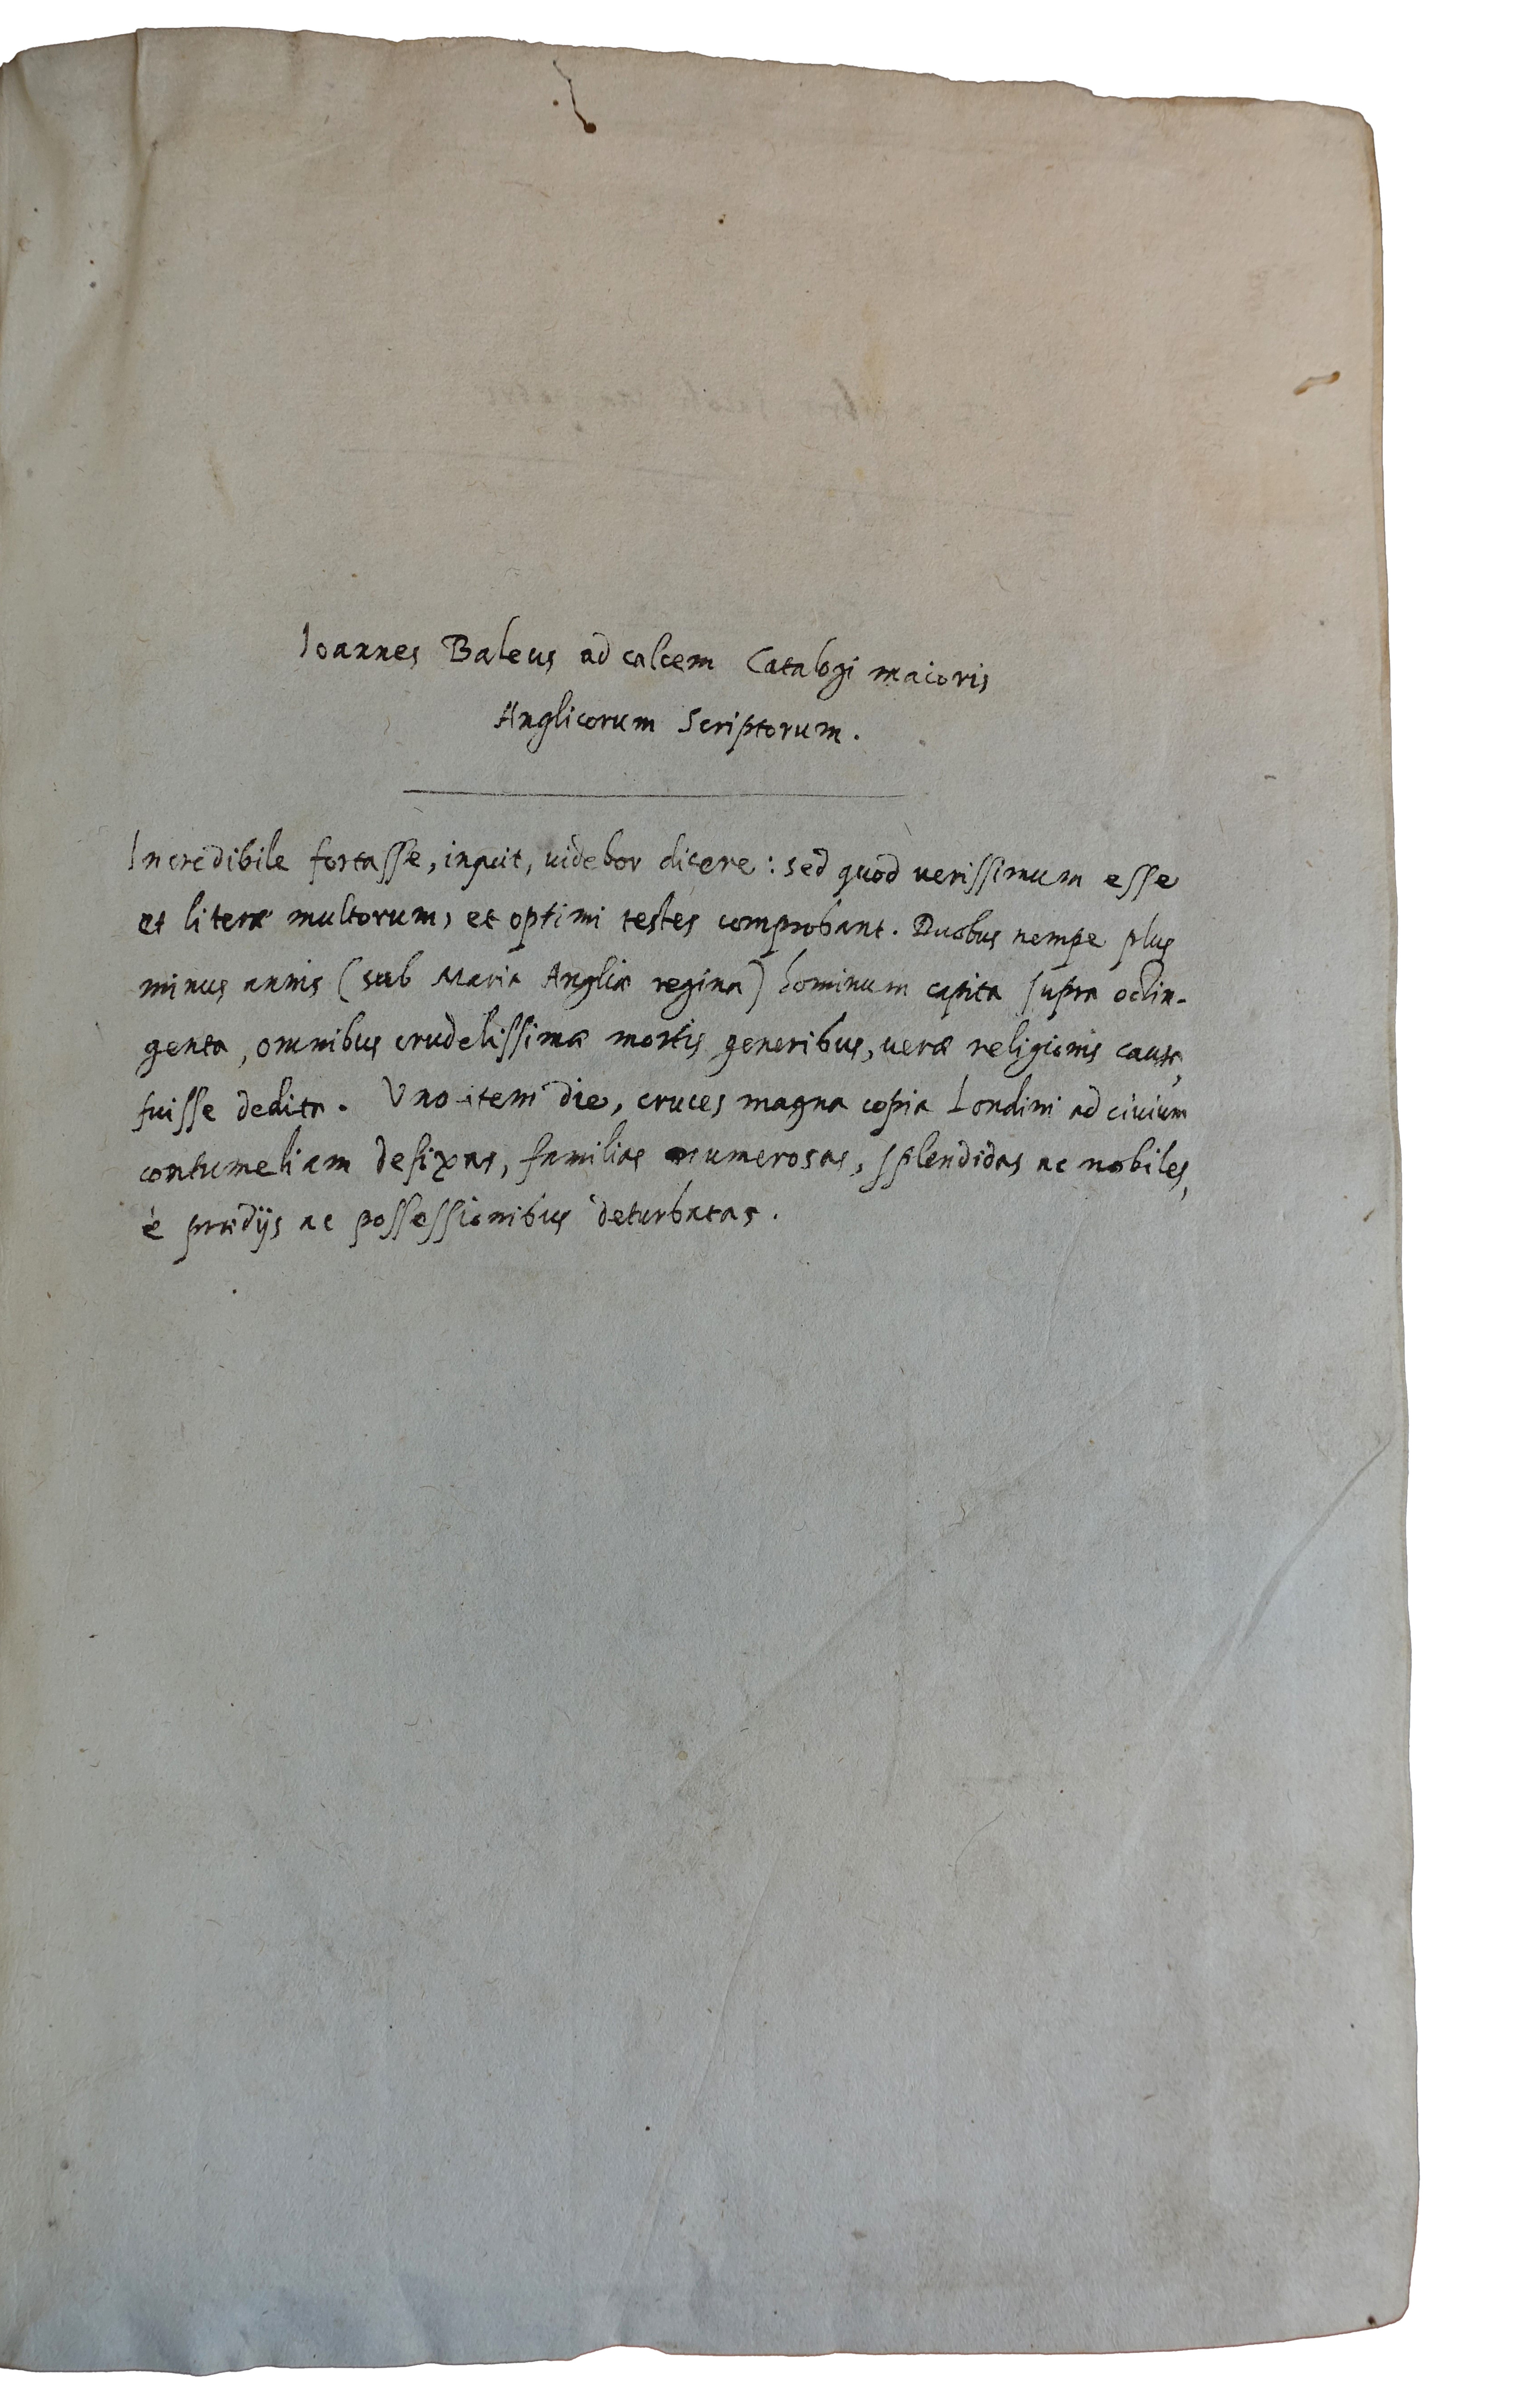 Ioannes Baleus ad calcem Catalogi maioris
Anglicorum Scriptorum.
Incredibile fortasse, inquit, uidebor dicere: sed quod uerissimum esse
et literæ multorum, et optimi testes comprobant. Duobus nempe plus
minus annis (sub Maria Angliæ regina) hominum capita supra octin-
genta, omnibus crudelissimæ mortis generibus, ueræ religionis causa,
fuisse dedita. Vno item die, cruces magna copia Londini ad ciuium
contumeliam defixas, familias numerosas, splendidas ac nobiles,
è prædijs ac possessionibus deturbatas.